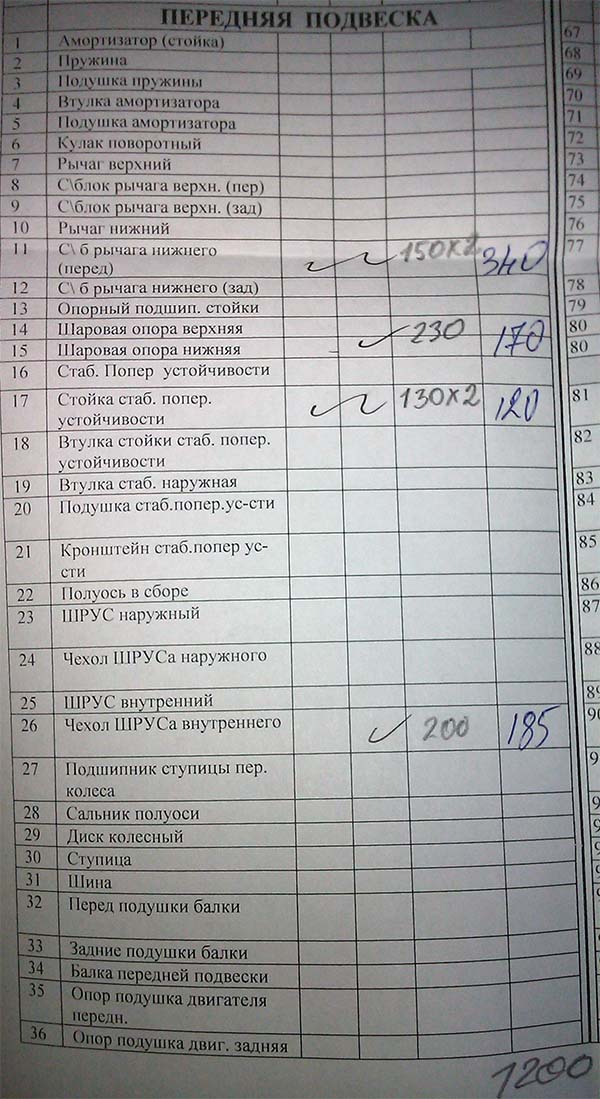 ПЕРЕДНЯЯ ПОДВЕСКА
1 Амортизатор (стойка) 67
2 Пружина 68
3 Подушка пружины 69
4 Втулка амортизатора 70
5 Подушка амортизатора 71
6 Кулак поворотный 72
7 Рычаг верхний 73
8 С\блок рычага верхн. (пер) 74
9 С\блок рычага верхн. (зад) 75
10 Рычаг нижний 76
11 С\ б рычага нижнего 150х2 340 77
(перед)
12 С\ б рычага нижнего (зад) 78
13 Опорный подшип. стойки 79
14 Шаровая опора верхняя 230 170 80
15 Шаровая опора нижняя 80
16 Стаб. Попер устойчивости
17 Стойка стаб. попер. 130х2 120 81
устойчивости
18 Втулка стойки стаб. попер. 82
устойчивости
19 Втулка стаб. наружная 83
20 Подушка стаб.попер.ус-сти 84
21 Кронштейн стаб.попер ус- 85
сти
22 Полуось в сборе 86
23 ШРУС наружный 87
24 Чехол ШРУСа наружного 88
25 ШРУС внутренний
26 Чехол ШРУСа внутреннего 200 185
27 Подшипник ступицы пер.
колеса
28 Сальник полуоси
29 Диск колесный
30 Ступица
31 Шина
32 Перед подушки балки
33 Задние подушки балки
34 Балка передней подвески
35 Опор подушка двигателя
передн.
36 Опор подушка двиг. задняя
1200